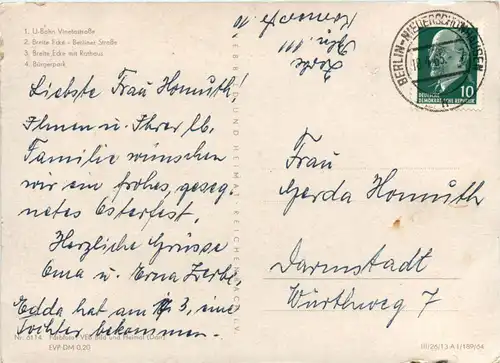 1. U-Bahn Vinetastraße
2. Breite Ecke - Berliner Straße
3. Breite Ecke mit Rathaus
4. Bürgerpark
Liebste Frau Homuth!
Ihnen u. Ihrer lb.
Familie wünschen
wir ein frohes, geseg-
netes Osterfest.
Herzliche Grüsse
Oma u. Erna Zerbe.
Edda hat am 3, eine
Tochter bekommen.
Nr. 6114
VEB Bild und Heimat
EVP-DM 0,20
VEB BILD UND HEIMAT REICHENBACH I. V.
Zerbe
BERLIN-NIEDERSCHÖNHAUSEN
10
DEUTSCHE
DEMOKRATISCHE REPUBLIK
Frau
Gerda Homuth
Darmstadt
Würthweg 7
III/26/13 A 1/189/64